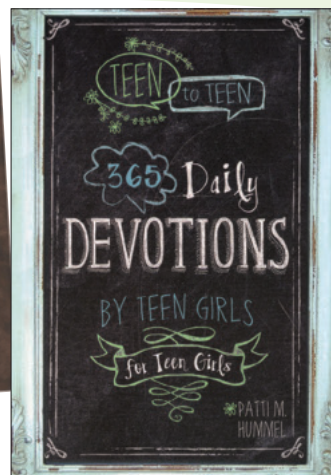 TEEN
to TEEN
365 Daily
DEVOTIONS
BY TEEN GIRLS
for Teen Girls
PATTI M.
HUMMEL